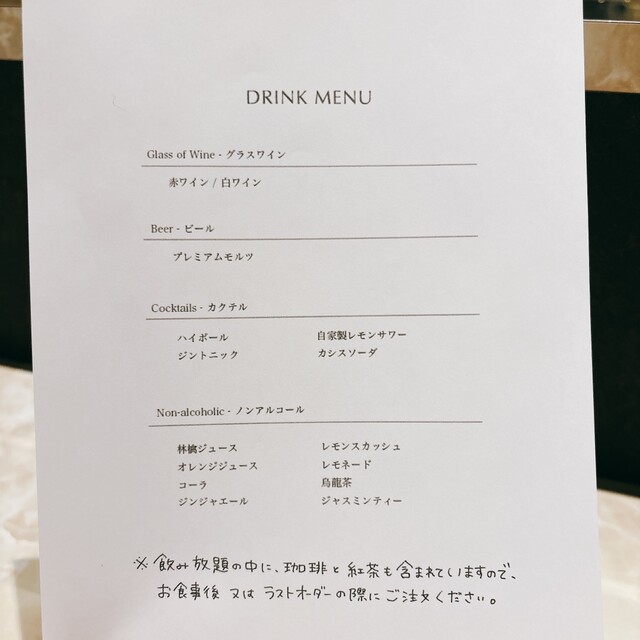 DRINK MENU
Glass of Wine - グラスワイン
赤ワイン / 白ワイン
Beer - ビール
プレミアムモルツ
Cocktails - カクテル
ハイボール 自家製レモンサワー
ジントニック カシスソーダ
Non-alcoholic - ノンアルコール
林檎ジュース レモンスカッシュ
オレンジジュース レモネード
コーラ 烏龍茶
ジンジャエール ジャスミンティー
※ 飲み放題の中に、珈琲と紅茶も含まれていますので、
お食事後 又は ラストオーダーの際に ご注文ください。